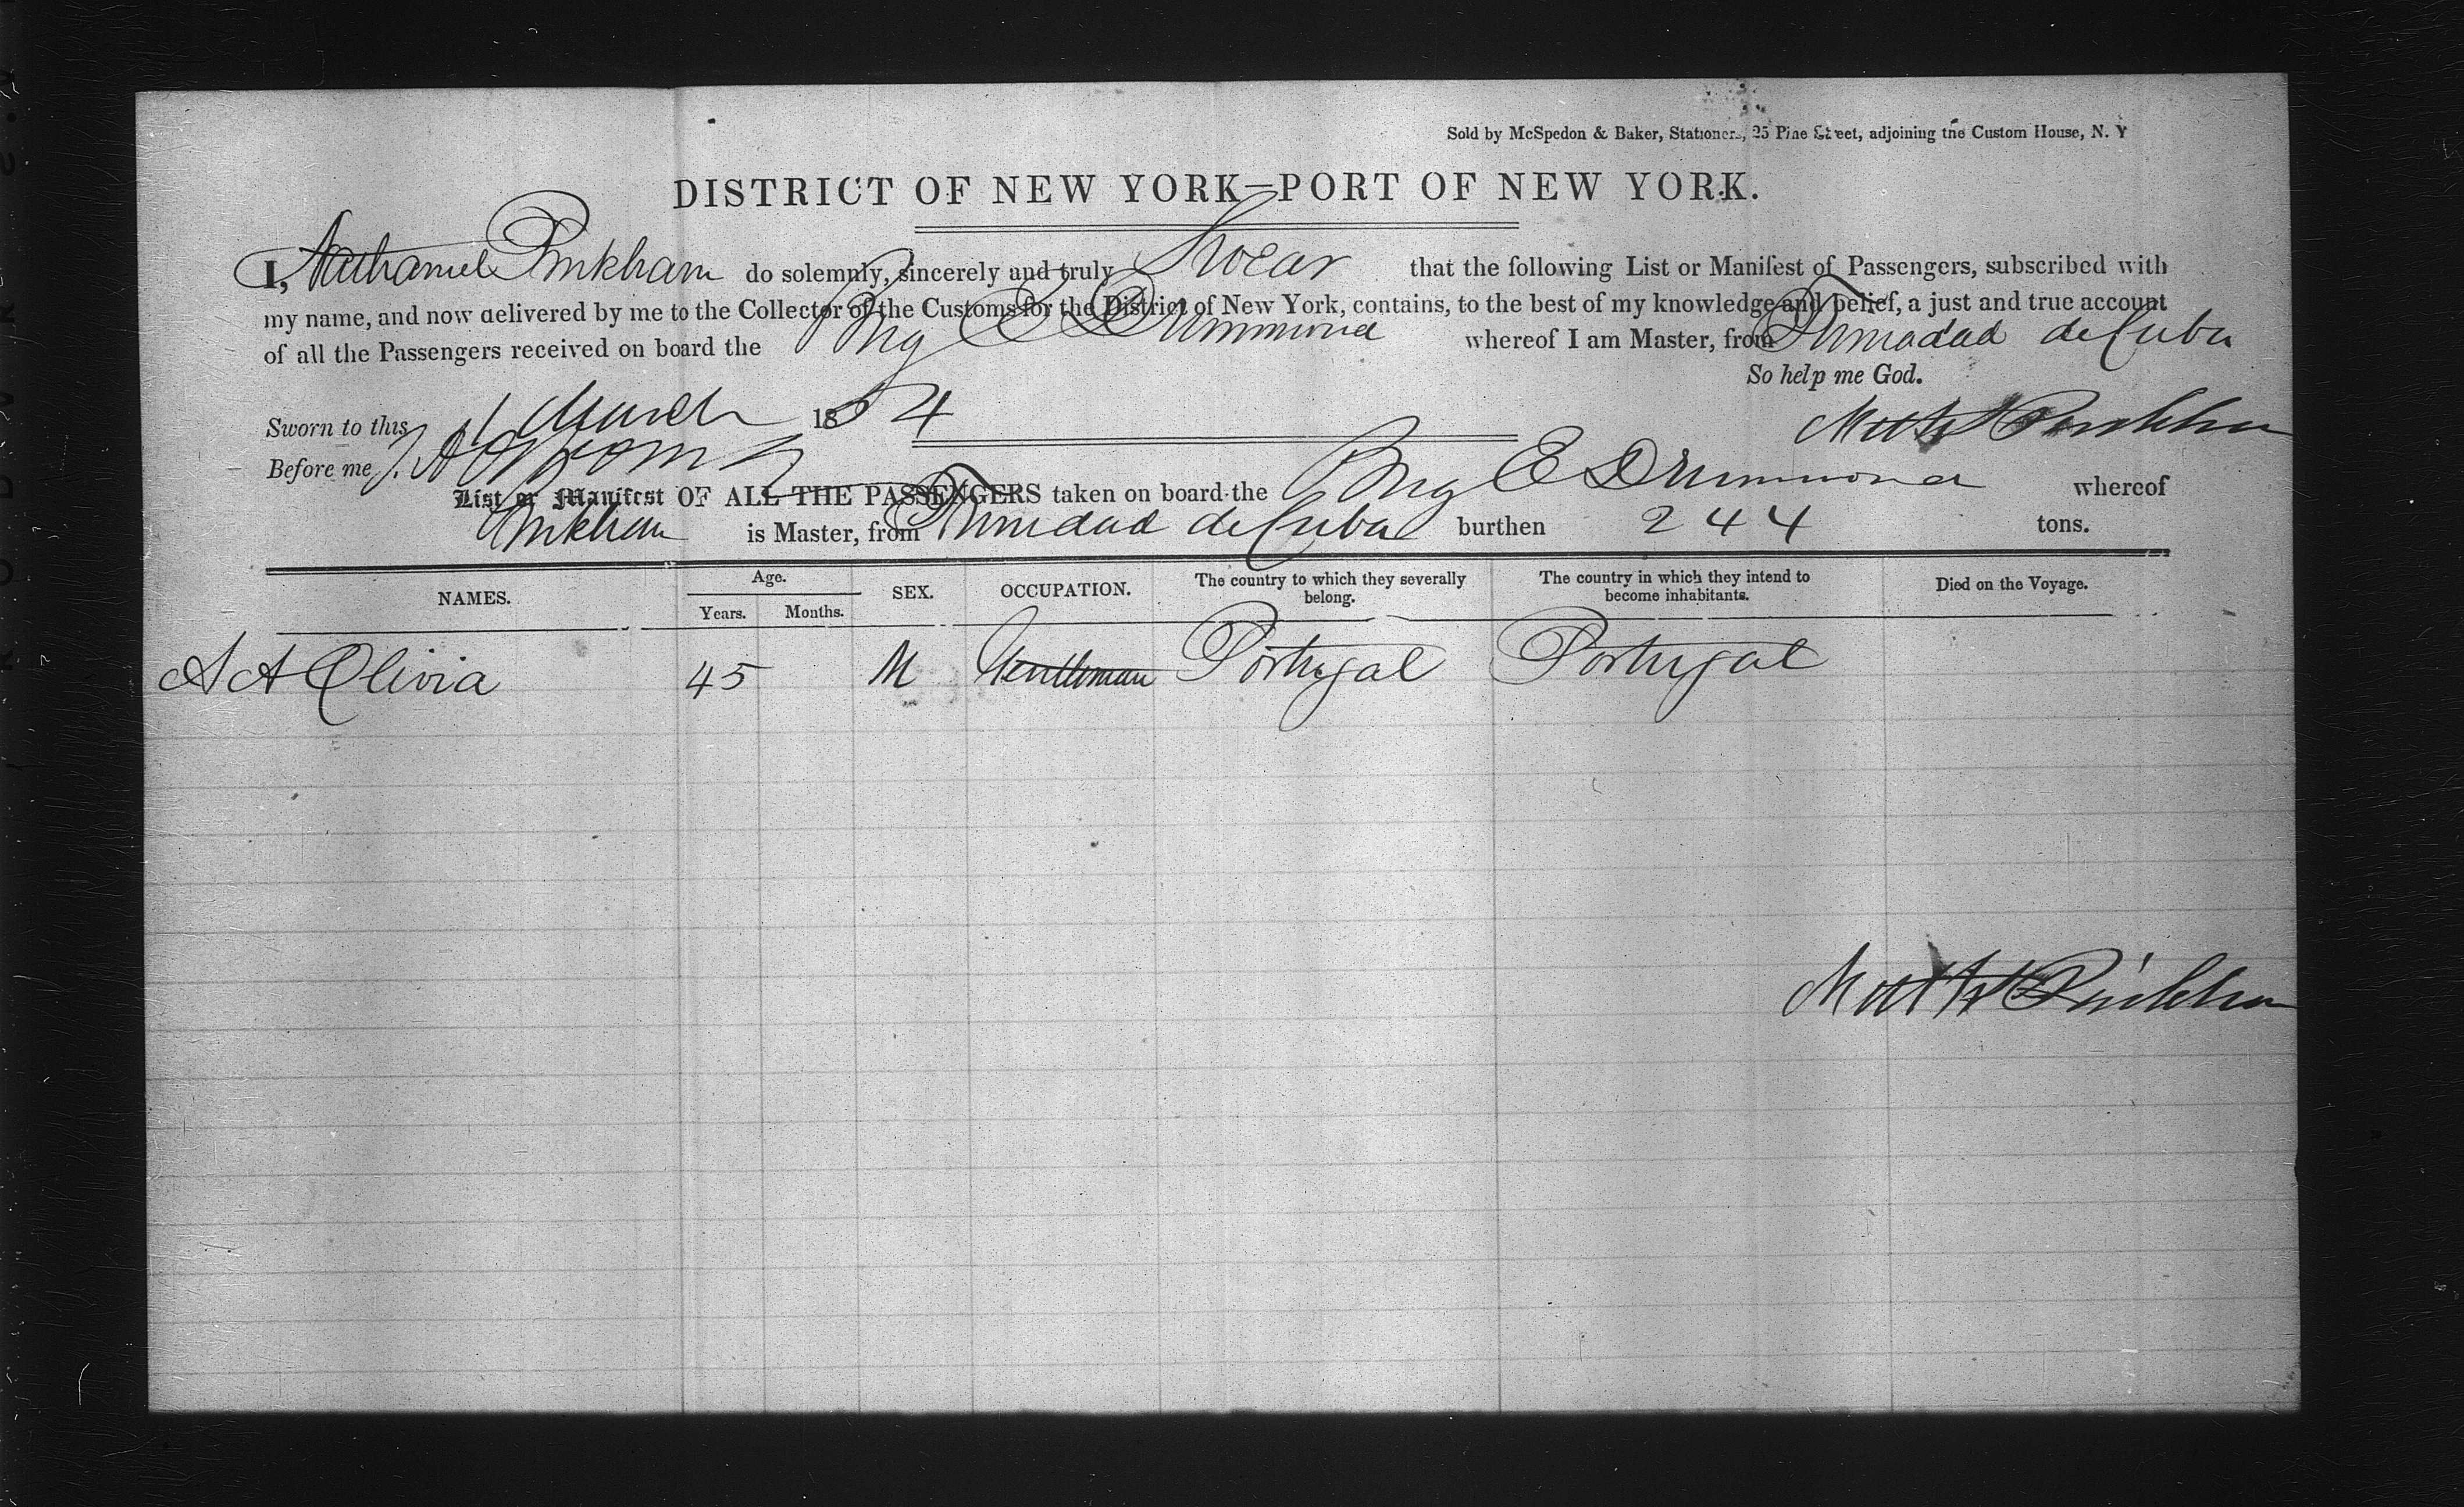 Sold by McSpedon & Baker, Stationers, 25 Pine Street, adjoining the Custom House, N. Y
DISTRICT OF NEW YORK—PORT OF NEW YORK.
I, Nathaniel Pinkham do solemnly, sincerely and truly Swear that the following List or Manifest of Passengers, subscribed with
my name, and now delivered by me to the Collector of the Customs for the District of New York, contains, to the best of my knowledge and belief, a just and true account
of all the Passengers received on board the Brig E Drummond whereof I am Master, from Trinidad de Cuba
So help me God.
Sworn to this 1 March 1854
Pinkham
Before me
List or Manifest OF ALL THE PASSENGERS taken on board the Brig E Drummond whereof
Pinkham is Master, from Trinidad de Cuba burthen 244 tons.
NAMES. Age. Years. Months. SEX. OCCUPATION. The country to which they severally belong. The country in which they intend to become inhabitants. Died on the Voyage.
A A Olivia 45 M Gentleman Portugal Portugal
Pinkham